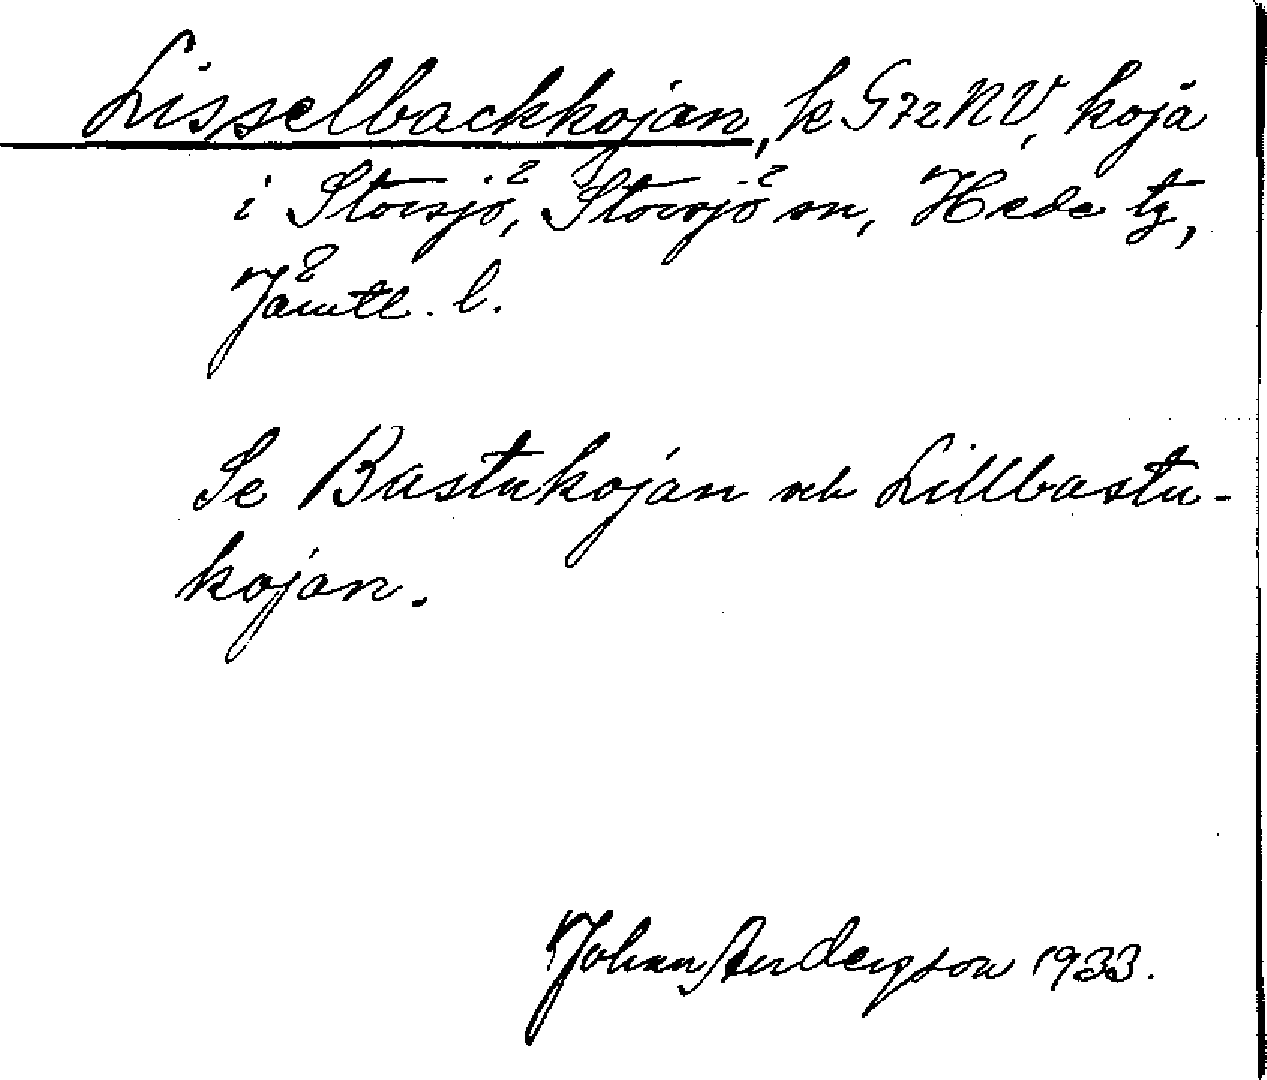 Lisselbackkojan, k G72NV, koja
i Storsjö, Storsjö sn, Hede tg,
Jämtl. l.
Se Bastukojan och Lillbastu-
kojan.
Johan Andersson 1933.